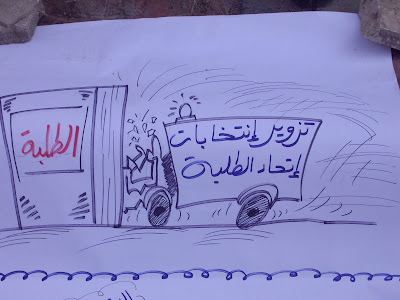 الطلبة
تزوير إنتخابات
إتحاد الطلبة